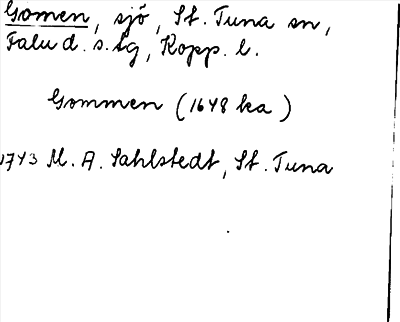 Gomen, sjö, St. Tuna sn,
Falu d. s. tg, Kopp. l.
Gommen (1648 ka)
1743 M. A. Sahlstedt, St. Tuna